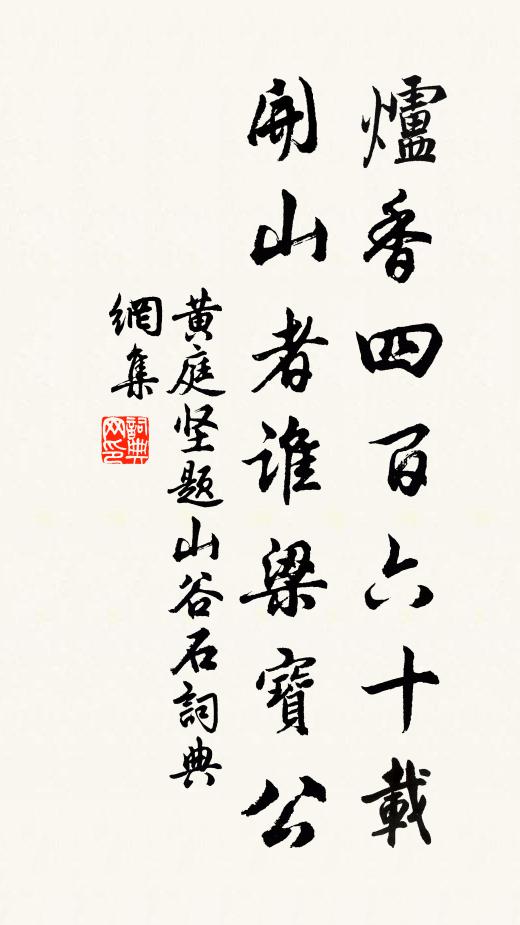 爐香四百六十載
開山者誰梁寶公
黄庭坚题山谷石詞典
網集
詞典
网印